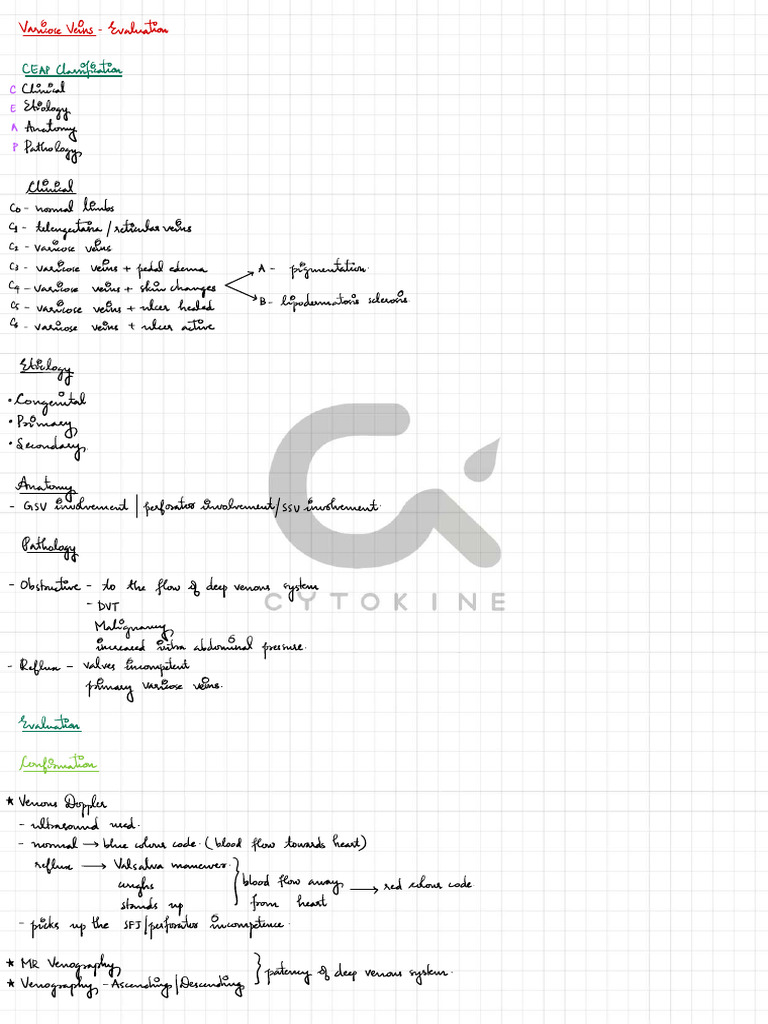 Varicose Veins - Evaluation
CEAP Classification
C Clinical
E Etiology
A Anatomy
P Pathology
Clinical
C0 - normal limbs
C1 - telengectasia / reticular veins
C2 - varicose veins
C3 - varicose veins + pedal edema
C4 - varicose veins + skin changes
A - pigmentation
B - lipodermatosis sclerosis
C5 - varicose veins + ulcer healed
C6 - varicose veins + ulcer active
Etiology
• Congenital
• Primary
• Secondary
Anatomy
- GSV involvement | perforator involvement / SSV involvement
Pathology
- Obstructive - to the flow of deep venous system
- DVT
Malignancy
increased intra abdominal pressure.
- Reflux - valves incompetent
primary varicose veins.
CYTOKINE
Evaluation
Confirmation
★ Venous Doppler
- ultrasound used.
- normal → blue colour code. (blood flow towards heart)
reflux → Valsalva maneuver.
coughs
stands up
} blood flow away from heart → red colour code
- picks up the SFJ/perforator incompetence.
★ MR Venography
★ Venography - Ascending / Descending
} patency of deep venous system.